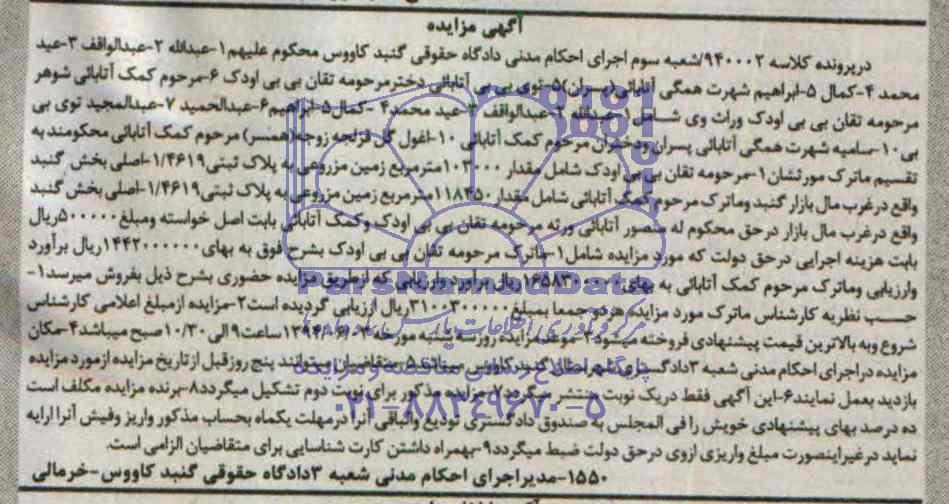 آگهی مزایده
درپرونده کلاسه ۹۴۰۰۰۲/شعبه سوم اجرای احکام مدنی دادگاه حقوقی گنبد کاووس محکوم علیهم۱-عبدالله ۲-عبدالواقف ۳-عید
محمد ۴-کمال ۵-ابراهیم شهرت همگی آتابائی(پسران)۵-توی بی بی آتابائی دخترمرحومه تقان بی بی اودک ۶-مرحوم کمک آتابائی شوهر
مرحومه تقان بی بی اودک وراث وی شامل۱-عبدالله ۲-عبدالواقف ۳-عید محمد۴-کمال۵-ابراهیم۶-عبدالحمید ۷-عبدالمجید توی بی
بی۱۰-سامیه شهرت همگی آتابائی پسران ودختران مرحوم کمک آتابائی ۱۰-اغول گل قزلجه زوجه(همسر) مرحوم کمک آتابائی محکومند به
تقسیم ماترک مورثشان۱-مرحومه تقان بی بی اودک شامل مقدار ۱۰۳۰۰۰مترمربع زمین مزروعی به پلاک ثبتی۱/۴۶۱۹-اصلی بخش گنبد
واقع درغرب مال بازار گنبد وماترک مرحوم کمک آتابائی شامل مقدار ۱۱۸۴۵۰مترمربع زمین مزروعی به پلاک ثبتی۱/۴۶۱۹-اصلی بخش گنبد
واقع درغرب مال بازار درحق محکوم له منصور آتابائی ورثه مرحومه تقان بی بی اودک وکمک آتابائی بابت اصل خواسته ومبلغ۵۰۰۰۰۰ریال
بابت هزینه اجرایی درحق دولت که مورد مزایده شامل۱-ماترک مرحومه تقان بی بی اودک بشرح فوق به بهای۱۴۴۲۰۰۰۰۰۰ریال برآورد
وارزیابی وماترک مرحوم کمک آتابائی به بهای۱۶۵۸۳۰۰۰۰۰ریال برآورد وارزیابی که ازطریق مزایده حضوری بشرح ذیل بفروش میرسد۱-
حسب نظریه کارشناس ماترک مورد مزایده هردو جمعا بمبلغ ۳۱۰۰۳۰۰۰۰۰ریال ارزیابی گردیده است۲-مزایده ازمبلغ اعلامی کارشناس
شروع وبه بالاترین قیمت پیشنهادی فروخته میشود۳-موعد مزایده روزسه شنبه مورخه ۱۳۹۴/۶/۰۳ساعت۹ الی ۱۰/۳۰صبح میباشد۴-مکان
مزایده دراجرای احکام مدنی شعبه ۳دادگستری گنبد کاووس ۵-متقاضیان میتوانند پنج روزقبل ازتاریخ مزایده ازمورد مزایده
بازدید بعمل نمایند۶-این آگهی فقط دریک نوبت منتشر میگردد۷-مزایده مذکور برای نوبت دوم تشکیل میگردد۸-برنده مزایده مکلف است
ده درصد بهای پیشنهادی خویش را فی المجلس به صندوق دادگستری تودیع والباقی آنرا درمهلت یکماه بحساب مذکور واریز وفیش آنرا ارایه
نماید درغیراینصورت مبلغ واریزی ازوی درحق دولت ضبط میگردد۹-بهمراه داشتن کارت شناسایی برای متقاضیان الزامی است.
۱۵۵۰-مدیراجرای احکام مدنی شعبه ۳دادگاه حقوقی گنبد کاووس-خرمالی
ParsNamadData
مرکز فرآوری اطلاعات پارس نماد داده ها
پایگاه اطلاع رسانی مناقصه و مزایده
۰۲۱-۸۸۳۴۹۶۷۰-۵